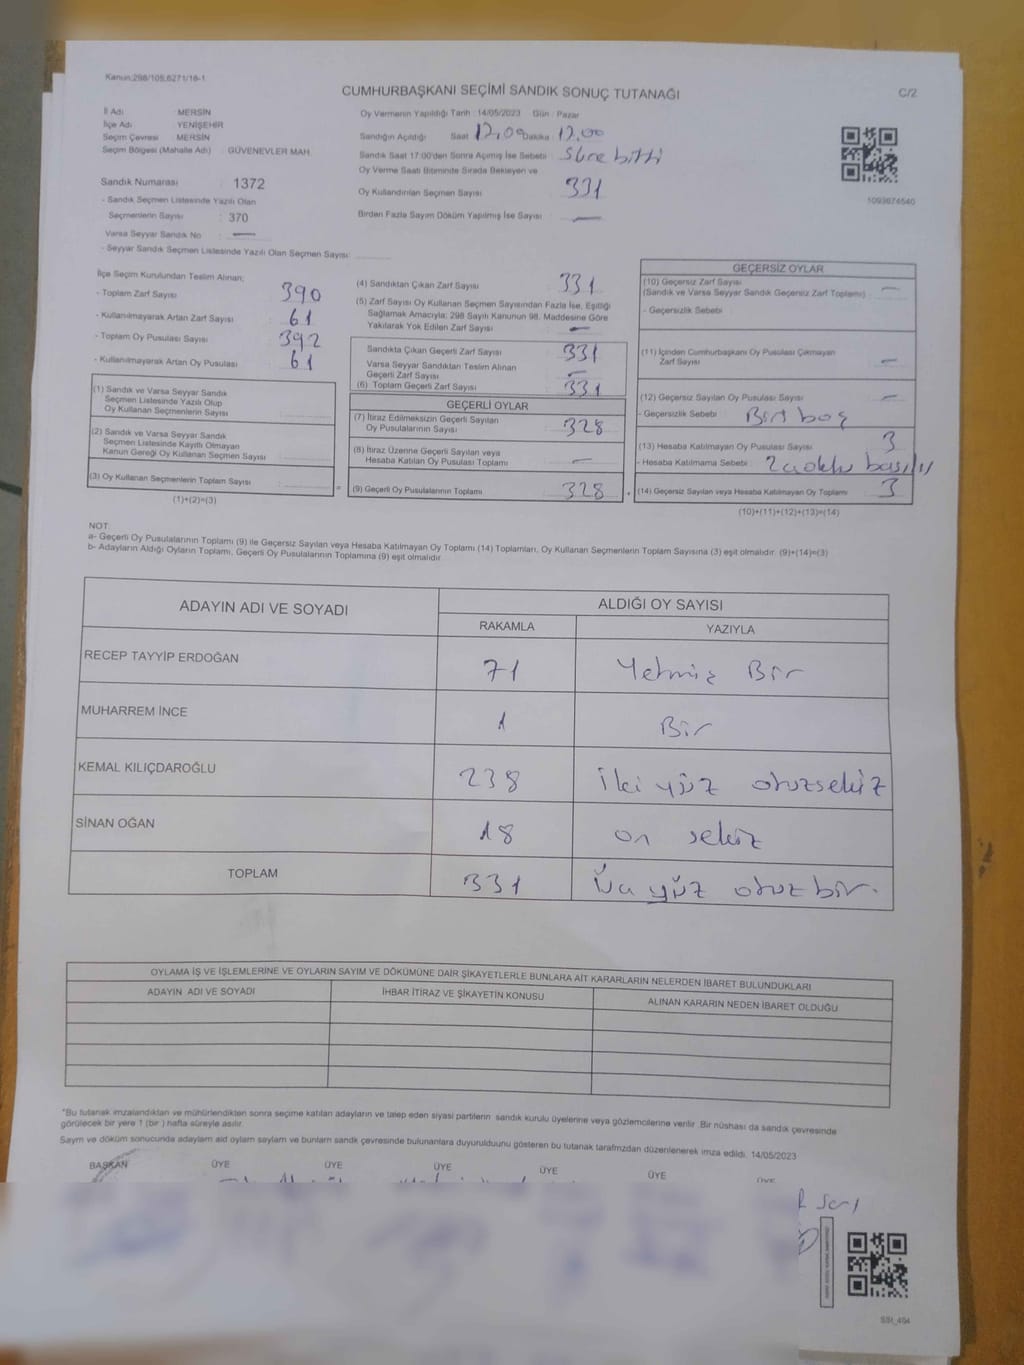 Kanun:298/105;6271/16-1
CUMHURBAŞKANI SEÇİMİ SANDIK SONUÇ TUTANAĞI
C/2
İl Adı : MERSİN
İlçe Adı : YENİŞEHİR
Seçim Çevresi : MERSİN
Seçim Bölgesi (Mahalle Adı) : GÜVENEVLER MAH.
Oy Vermenin Yapıldığı Tarih : 14/05/2023 Gün : Pazar
Sandığın Açıldığı Saat Dakika : 17.00
Sandık Saat 17:00'den Sonra Açımış İse Sebebi : Süre bitti
Oy Verme Saati Bitiminde Sırada Bekleyen ve
Oy Kullandırılan Seçmen Sayısı : 331
Birden Fazla Sayım Döküm Yapılmış İse Sayısı : —
1093674540
Sandık Numarası : 1372
- Sandık Seçmen Listesinde Yazılı Olan
Seçmenlerin Sayısı : 370
Varsa Seyyar Sandık No : —
- Seyyar Sandık Seçmen Listesinde Yazılı Olan Seçmen Sayısı:
İlçe Seçim Kurulundan Teslim Alınan;
- Toplam Zarf Sayısı : 390
- Kullanılmayarak Artan Zarf Sayısı : 61
- Toplam Oy Pusulası Sayısı : 392
- Kullanılmayarak Artan Oy Pusulası : 61
(1) Sandık ve Varsa Seyyar Sandık
Seçmen Listesinde Yazılı Olup
Oy Kullanan Seçmenlerin Sayısı :
(2) Sandık ve Varsa Seyyar Sandık
Seçmen Listesinde Kayıtlı Olmayan
Kanun Gereği Oy Kullanan Seçmen Sayısı :
(3) Oy Kullanan Seçmenlerin Toplam Sayısı :
(1)+(2)=(3)
(4) Sandıktan Çıkan Zarf Sayısı : 331
(5) Zarf Sayısı Oy Kullanan Seçmen Sayısından Fazla İse, Eşitliği
Sağlamak Amacıyla; 298 Sayılı Kanunun 98. Maddesine Göre
Yakılarak Yok Edilen Zarf Sayısı : —
Sandıkta Çıkan Geçerli Zarf Sayısı : 331
Varsa Seyyar Sandıktan Teslim Alınan
Geçerli Zarf Sayısı : —
(6) Toplam Geçerli Zarf Sayısı : 331
GEÇERLİ OYLAR
(7) İtiraz Edilmeksizin Geçerli Sayılan
Oy Pusulalarının Sayısı : 328
(8) İtiraz Üzerine Geçerli Sayılan veya
Hesaba Katılan Oy Pusulası Toplamı : —
(9) Geçerli Oy Pusulalarının Toplamı : 328
GEÇERSİZ OYLAR
(10) Geçersiz Zarf Sayısı
(Sandık ve Varsa Seyyar Sandık Geçersiz Zarf Toplamı) : —
- Geçersizlik Sebebi :
(11) İçinden Cumhurbaşkanı Oy Pusulası Çıkmayan
Zarf Sayısı : —
(12) Geçersiz Sayılan Oy Pusulası Sayısı : —
- Geçersizlik Sebebi : Biri boş
(13) Hesaba Katılmayan Oy Pusulası Sayısı : 3
- Hesaba Katılmama Sebebi :
(14) Geçersiz Sayılan veya Hesaba Katılmayan Oy Toplamı : 3
(10)+(11)+(12)+(13)=(14)
NOT:
a- Geçerli Oy Pusulalarının Toplamı (9) ile Geçersiz Sayılan veya Hesaba Katılmayan Oy Toplamı (14) Toplamları, Oy Kullanan Seçmenlerin Toplam Sayısına (3) eşit olmalıdır. (9)+(14)=(3)
b- Adayların Aldığı Oyların Toplamı, Geçerli Oy Pusulalarının Toplamına (9) eşit olmalıdır.
ADAYIN ADI VE SOYADI ALDIĞI OY SAYISI
RAKAMLA YAZIYLA
RECEP TAYYİP ERDOĞAN 71 Yetmiş Bir
MUHARREM İNCE 1 Bir
KEMAL KILIÇDAROĞLU 238 İki yüz otuzsekiz
SİNAN OĞAN 18 on sekiz
TOPLAM 331 Üç yüz otuz bir.
OYLAMA İŞ VE İŞLEMLERİNE VE OYLARIN SAYIM VE DÖKÜMÜNE DAİR ŞİKAYETLERLE BUNLARA AİT KARARLARIN NELERDEN İBARET BULUNDUKLARI
ADAYIN ADI VE SOYADI İHBAR İTİRAZ VE ŞİKAYETİN KONUSU ALINAN KARARIN NEDEN İBARET OLDUĞU
*Bu tutanak imzalandıktan ve mühürlendikten sonra seçime katılan adayların ve talep eden siyasi partilerin sandık kurulu üyelerine veya gözlemcilerine verilir. Bir nüshası da sandık çevresinde
görülecek bir yere 1 (bir ) hafta süreyle asılır.
Sayım ve döküm sonucunda adayların aid oyların sayların ve bunların sandık çevresinde bulunanlara duyurulduunu gösteren bu tutanak tarafımızdan düzenlenerek imza edildi. 14/05/2023
BAŞKAN ÜYE ÜYE ÜYE ÜYE ÜYE ÜYE
SSI_494